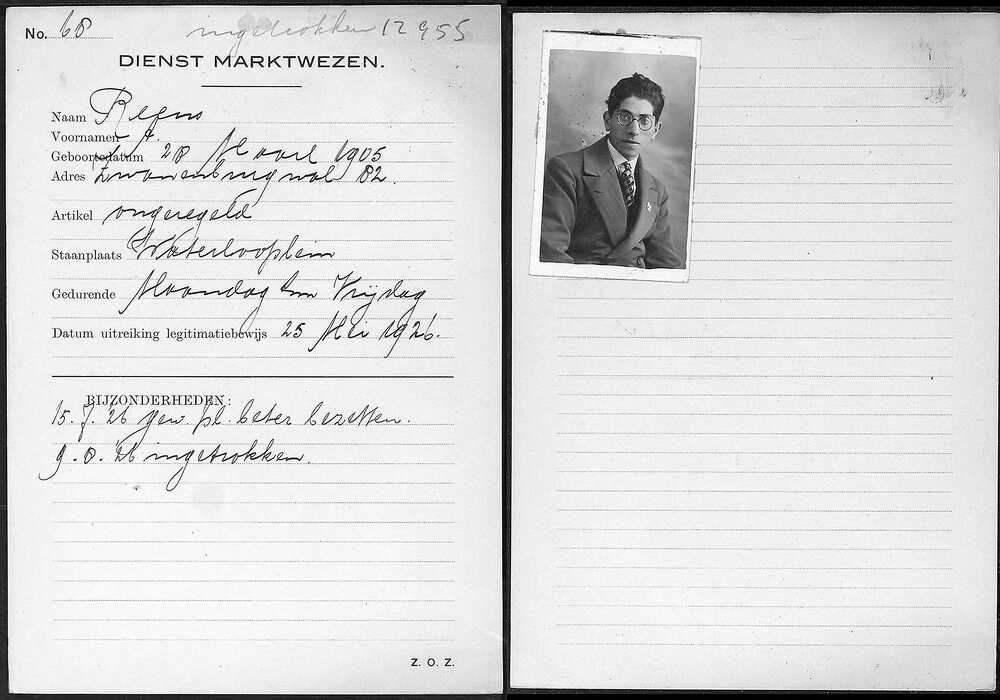 No. 68 ingetrokken 12955
DIENST MARKTWEZEN.
Naam
Voornamen A.
Geboortedatum 28 Maart 1905
Adres Zwanenburgwal 82.
Artikel ongeregeld
Staanplaats Waterlooplein
Gedurende Maandag t/m Vrijdag
Datum uitreiking legitimatiebewijs 25 Mei 1926.
BIJZONDERHEDEN:
15.7.'26 gew. pl. beter bezetten.
9.8.'26 ingetrokken.
Z. O. Z.